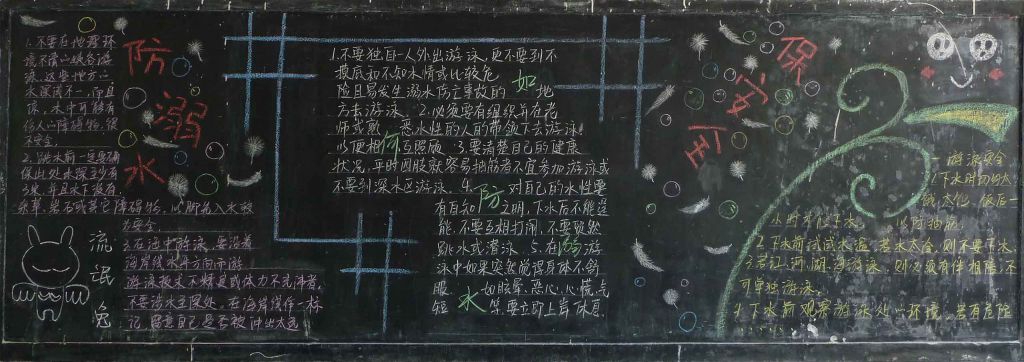 防溺水
保安全
1.不要在地理环
境不清的峡谷游
泳.这些地方的
水深浅不一,而且
凉,水中可能有
伤人的障碍物,很
不安全.
2.跳水前一定要确
保此处水深至少有
3米,并且水下没有
杂草,岩石或其它障碍物,以脚先入水较
为安全.
3.在海中游泳,要沿着
海岸线水平方向而游
游泳技术不精良或体力不充沛者,
不要涉水至深处,在海岸线作一标
记 留意自己是否被冲出太远
流
氓
兔
1.不要独自一人外出游泳,更不要到不
摸底和不知水情或比较危
险且易发生溺水伤亡事故的 地
方去游泳.2.必须要有组织并在老
师或熟 悉水性的人的带领下去游泳!
以便相 互照顾 3.要清楚自己的健康
状况,平时四肢就容易抽筋者不宜参加游泳或
不要到深水区游泳.4. 对自己的水性要
有自知 之明,下水后不能逞
能,不要互相打闹,不要贸然
跳水或潜泳.5.在 游
泳中如果突然觉得身体不舒
服. 如眩晕.恶心,心慌,气
短 等.要立即上岸休息
如
何
防
溺
水
游泳安全
1.下水时勿
饿太饱.饭后一
小时才能下水,以防抽筋
2.下水前试试水温,若水太冷,则不要下水.
3.若江,河,湖,海游泳,则必须有伴相陪,不
可单独游泳.
4.下水前观察游泳处环境,若有危险